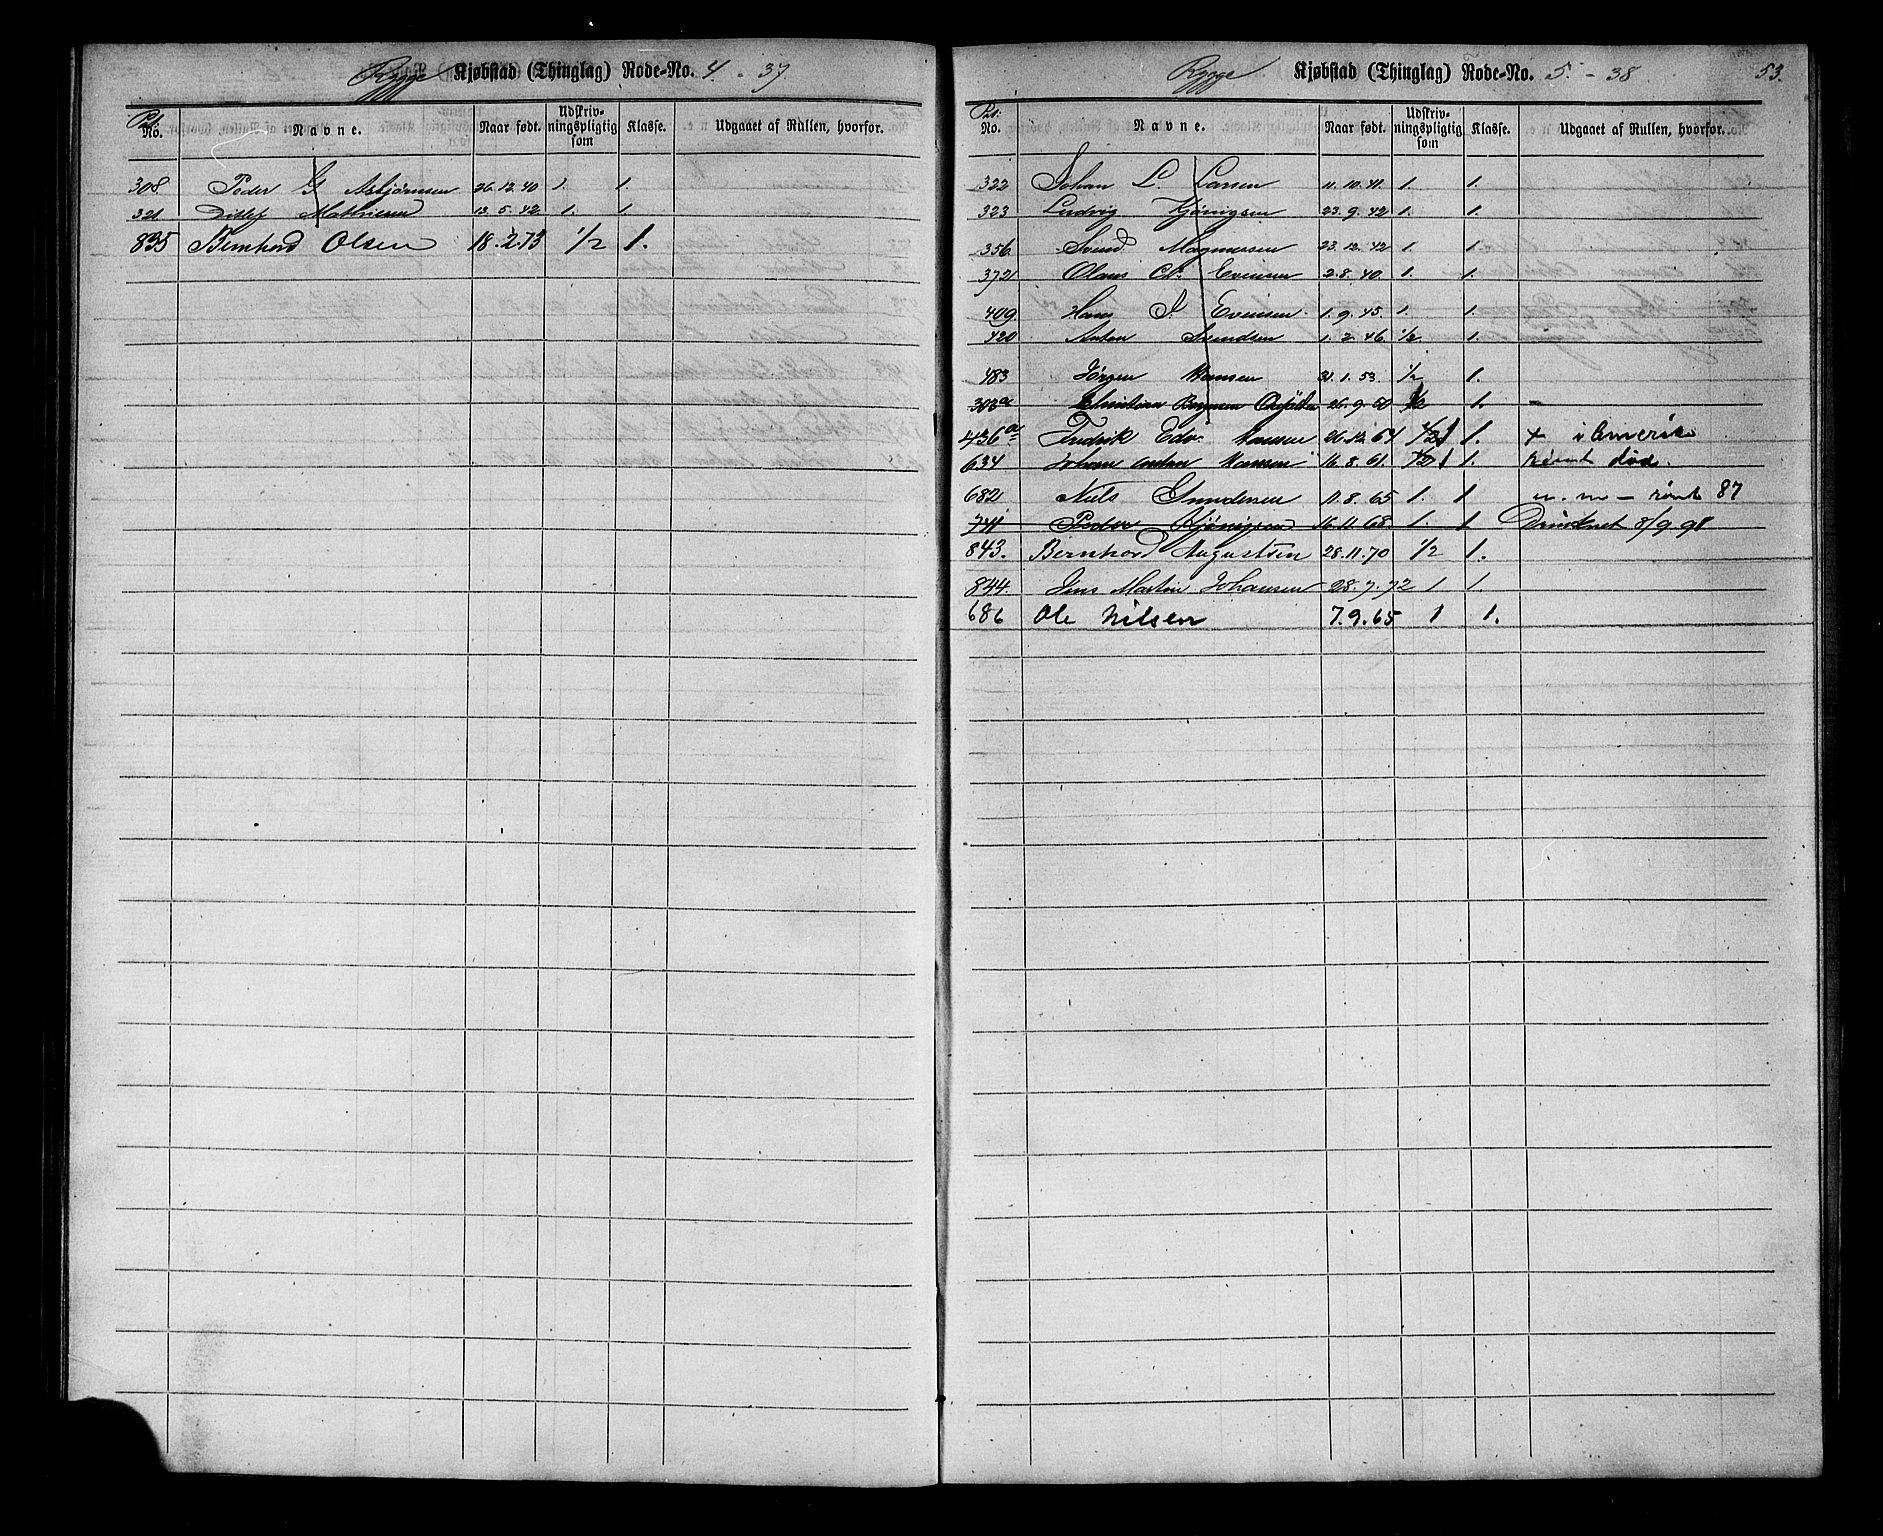 Rygge Kjøbstad (Thinglag) Rode-No. 4. - 37.
Pat. No. Navne. Naar født. Udskrivningspligtig som Klasse. Udgaaet af Rullen, hvorfor.
308 Peder G Asbjørnsen 26.12.40 1. 1.
321 Ditlef Mathiesen 13.5.42 1. 1.
835 Bernhard Olsen 18.2.73 1/2 1.
Rygge Kjøbstad (Thinglag) Rode-No. 5. - 38 53.
Pat. No. Navne. Naar født. Udskrivningspligtig som Klasse. Udgaaet af Rullen, hvorfor.
322 Johan L. Larsen 11.10.41. 1. 1.
323 Ludvig Kjønigsen 23.9.42 1. 1.
356 Svend Magnussen 23.12.42 1. 1.
372 Olaus Chr. Evensen 2.8.40. 1. 1.
409 Hans J. Evensen 1.9.45. 1. 1.
420 Anton Svendsen 1.2.46. 1/2 1.
483 Jørgen Hansen 31.1.53. 1/2 1.
303a Christian 26.9.50 1/2 1. -
436a Fredrik Edv. Hansen 26.12.64 1/2 1 1. + i Amerika
634 Johan Anton Hansen 16.8.61. 1/2 1 1. død.
682 Niels Gundersen 11.8.65 1. 1 u. m - rømt 87
741 Peder Kjønigsen 16.11.68. 1. 1 Druknet 8/9.98
843. Bernhard Augustsen 28.11.70 1/2 1.
844. Jens Martin Johansen 28.7.72 1 1.
686 Ole Nilsen 7.9.65 1 1.